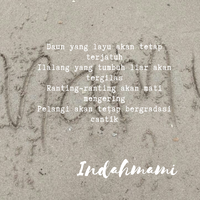 Daun yang layu akan tetap
terjatuh
Ilalang yang tumbuh liar akan
tergilas
Ranting-ranting akan mati
mengering
Pelangi akan tetap bergradasi
cantik
Indahmami